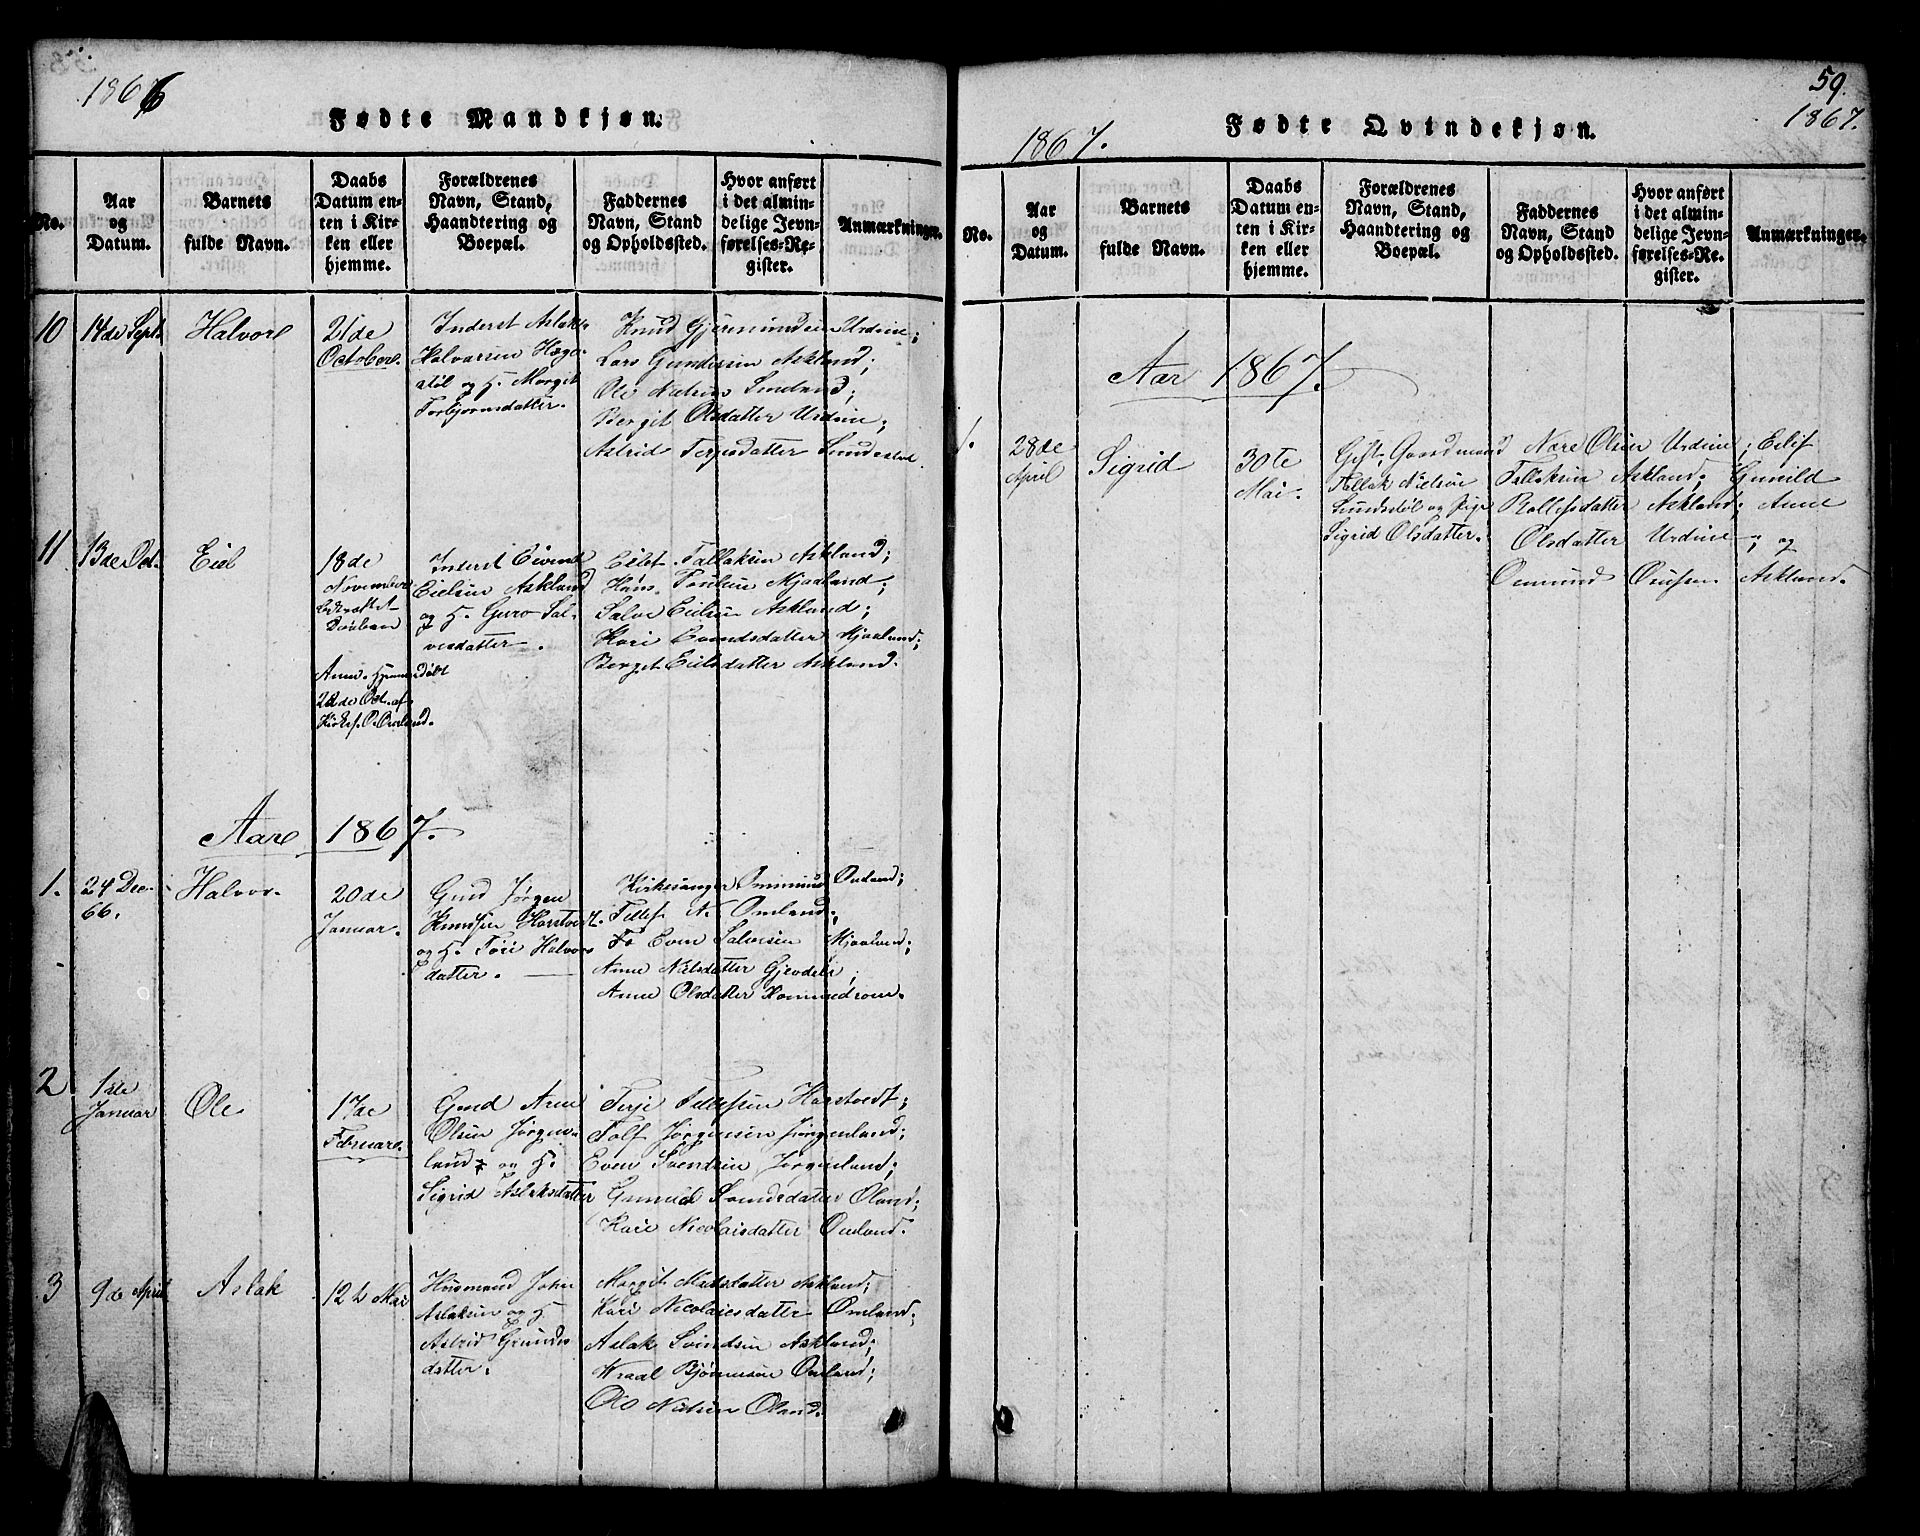 1866
Fødte Mandkjøn.
No.
Aar
og
Datum.
Barnets
fulde Navn.
Daabs
Datum en-
ten i Kir-
ken eller
hjemme.
Forældrenes
Navn, Stand,
Haandtering og
Boepæl.
Faddernes
Navn, Stand
og Opholdssted.
Hvor anført
i det almin-
delige Jevn-
førelses-Re-
gister.
Anmærkninger.
10
14de Sept.
Halvor
21de
October.
Inderst Aslak
Halvorsen Hæge-
støl og H. Margit
Torbjørnsdatter.
Knud Gjermundsen Urdine;
Lars Gundersen Askland;
Ole Nielsen
Berget Olsdatter Urdine;
Astrid Terjesdatter
11
13de Oct.
Eiel
18de
November
Anm. Hjemmedøbt
22de Oct. af
Kirkes. O. Omland.
Inderst Eivind
Eielsen Askland
og H. Guro Sal-
vesdatter.
Eilef Tallaksen Askland;
Hans Mjaaland;
Salve Eielsen Askland;
Kari Evindsdatter Mjaaland;
Berget Eielsdatter Askland.
Aar 1867.
1.
24 Dec.
66.
Halvor.
20de
Januar.
Gmd Jørgen
Knudsen Harstvedt
og H. Tori Halvors-
datter.
Kirkesanger Ommund Omland;
Tellef N. Omland;
Even Salvesen Mjaaland;
Anne Nielsdatter Gjevdeli;
Anne Olsdatter
2
1ste
Januar
Ole
17de
Februar.
Gmd Arne
Olsen Jørgen-
land og H.
Sigrid Aslaksdatter
Terje Tellefsen Harstvedt;
Tolf Jørgensen Jørgenland;
Even Svendsen Jørgenland;
Gunild Svendsdatter Øland;
Kari Nicolaisdatter Omland.
3
9de April
Aslak
12te Mai
Huusmand John
Aslaksen og H.
Astrid Gunders-
datter.
Margit Nielsdatter Askland;
Kari Nicolaiesdatter Omland;
Aslak Svindsen Askland;
Wraal Bjørnussen Omland;
Ole Nielsen Øland.
59.
1867.
1867.
Fødte Qvindekjøn.
No.
Aar
og
Datum.
Barnets
fulde Navn.
Daabs
Datum en-
ten i Kir-
ken eller
hjemme.
Forældrenes
Navn, Stand,
Haandtering og
Boepæl.
Faddernes
Navn, Stand
og Opholdssted.
Hvor anført
i det almin-
delige Jevn-
førelses-Re-
gister.
Anmærkninger.
Aar 1867.
1.
28de
April
Sigrid
30te
Mai.
Gift, Gaardmand
Tallak Nielsen
Sundsdøl og Pige
Sigrid Olsdatter.
Nære Olsen Urdine; Eilef
Tallaksen Askland; Gunild
Rollefsdatter Askland; Anne
Olsdatter Urdine; og
Osmund Askland.